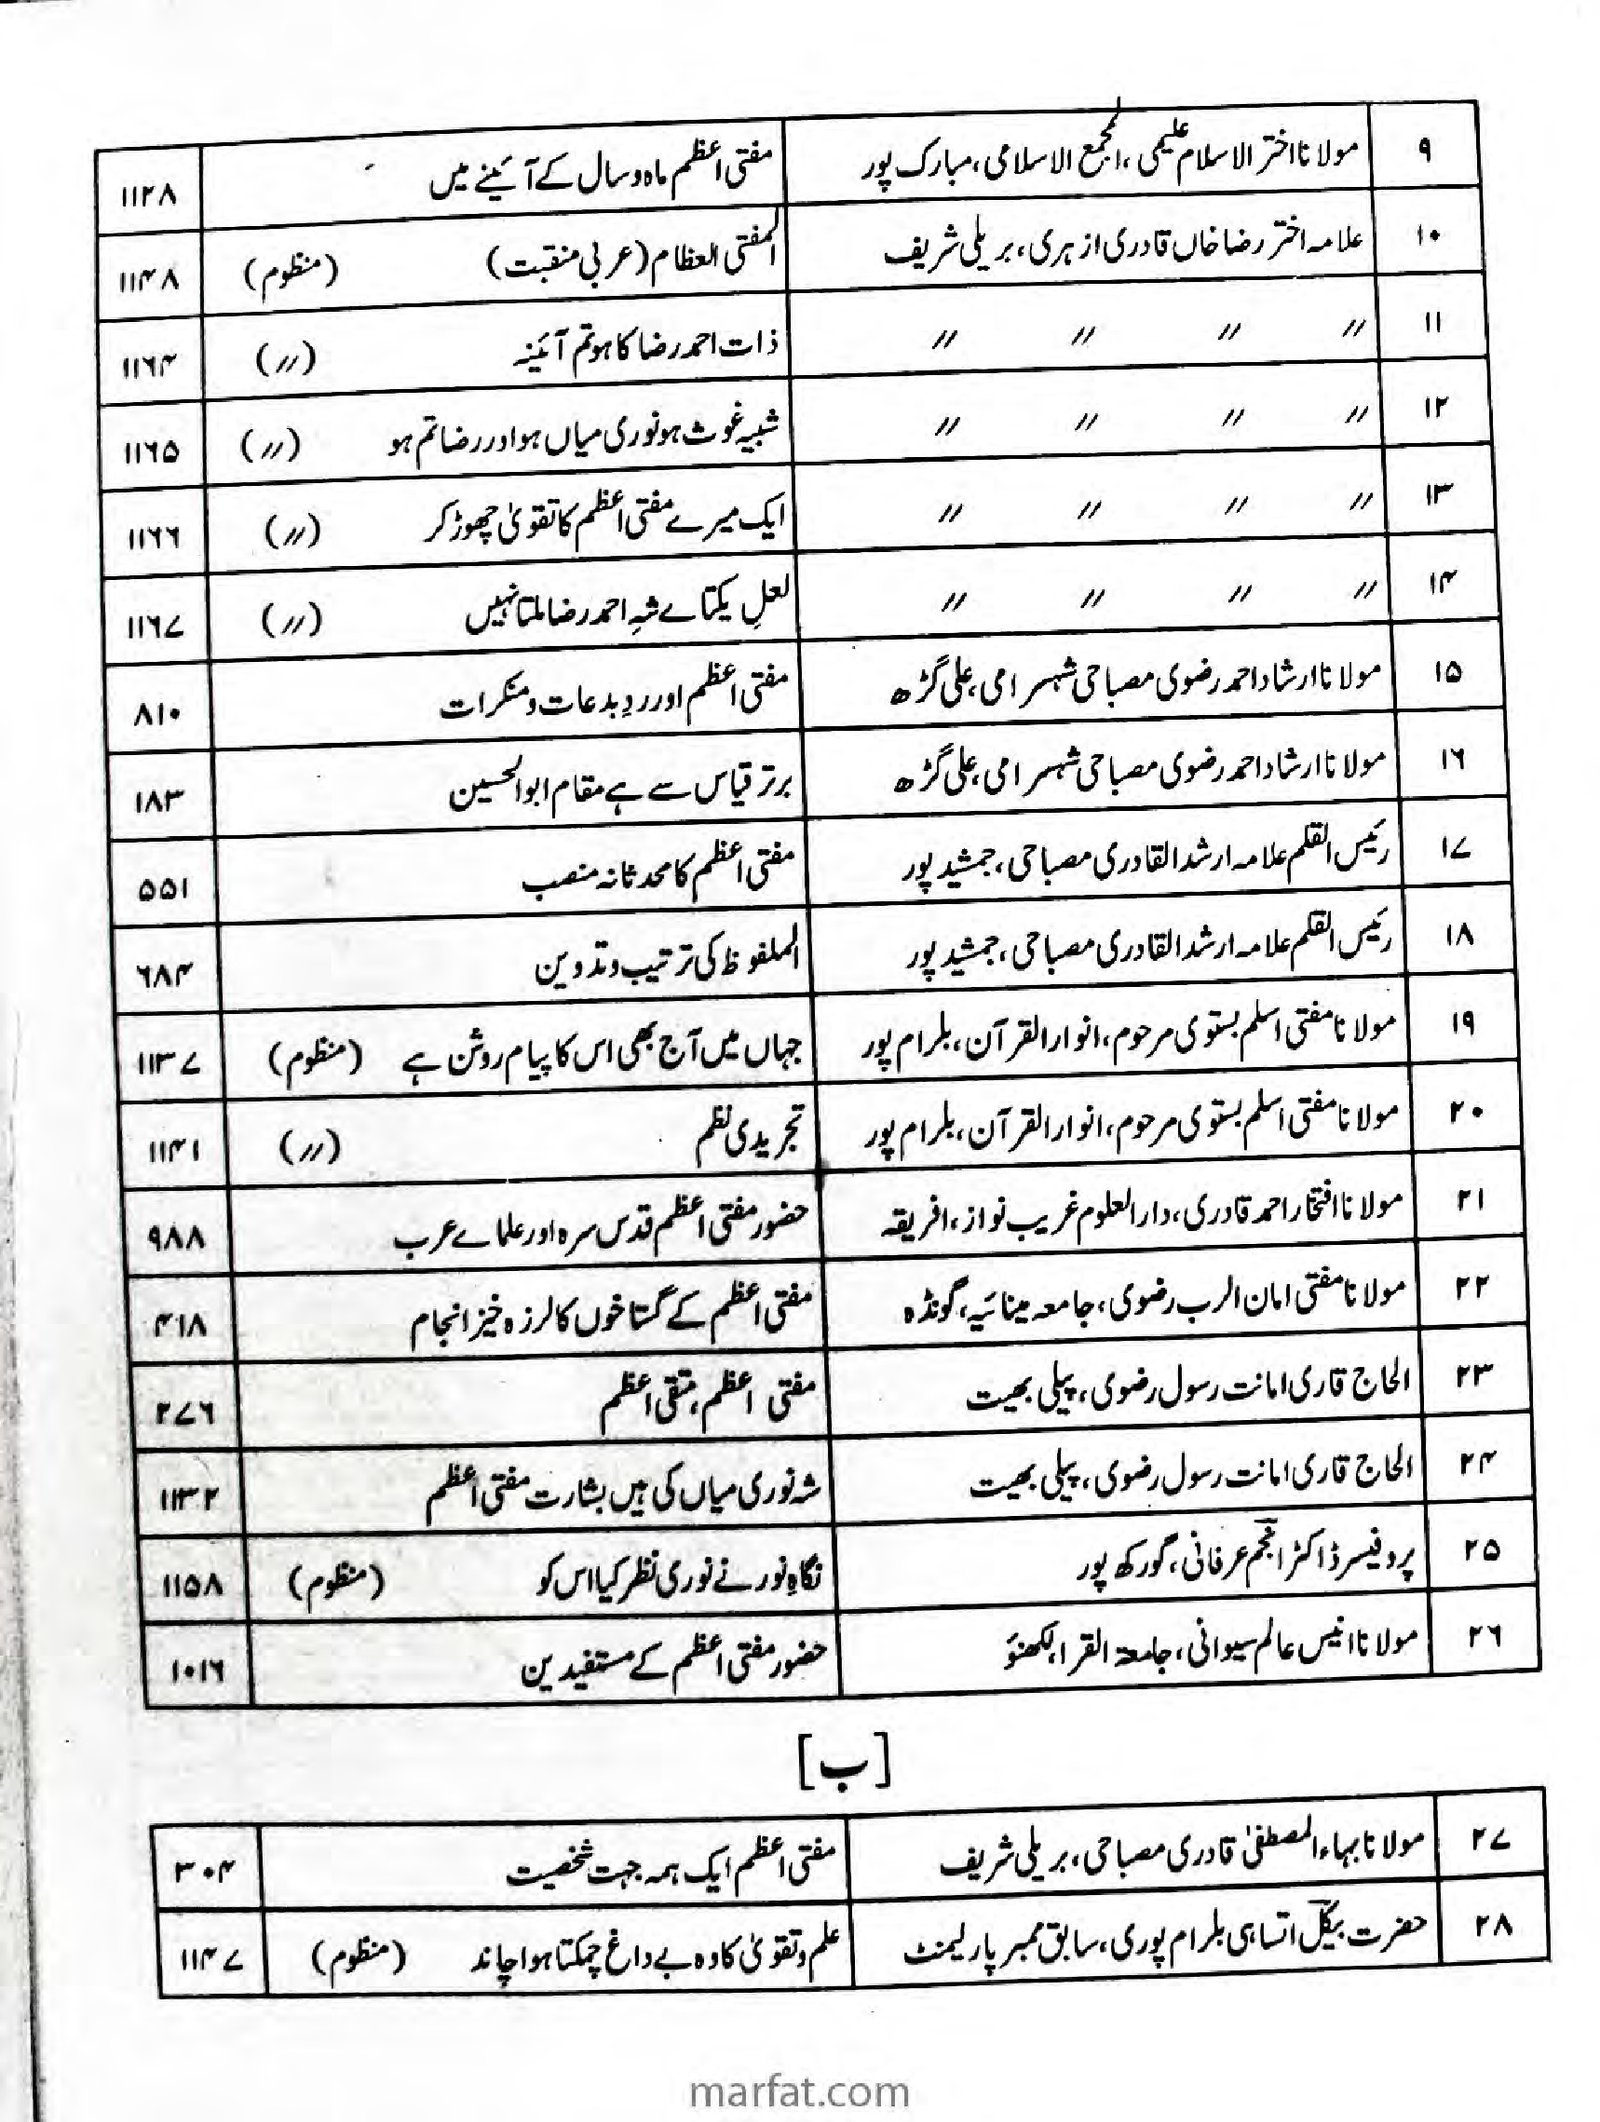 ۹ مولانا اختر الاسلام علیمی، المجمع الاسلامی، مبارک پور مفتی اعظم ماہ و سال کے آئینے میں ۱۱۲۸
۱۰ علامہ اختر رضا خاں قادری ازہری، بریلی شریف المفتی العظام (عربی منقبت) (منظوم) ۱۱۴۸
۱۱ // // // // ذات احمد رضا کا ہو تم آئینہ (//) ۱۱۶۴
۱۲ // // // // شبیہِ غوث ہو نوری میاں ہو اور رضا تم ہو (//) ۱۱۶۵
۱۳ // // // // ایک میرے مفتی اعظم کا تقویٰ چھوڑ کر (//) ۱۱۶۶
۱۴ // // // // لعلِ یکتاے شہِ احمد رضا ملتا نہیں (//) ۱۱۶۷
۱۵ مولانا ارشاد احمد رضوی مصباحی شہسرامی، علی گڑھ مفتی اعظم اور ردِ بدعات و منکرات ۸۱۰
۱۶ مولانا ارشاد احمد رضوی مصباحی شہسرامی، علی گڑھ برتر قیاس سے ہے مقام ابوالحسین ۱۸۳
۱۷ رئیس القلم علامہ ارشد القادری مصباحی، جمشید پور مفتی اعظم کا محدثانہ منصب ۵۵۱
۱۸ رئیس القلم علامہ ارشد القادری مصباحی، جمشید پور الملفوظ کی ترتیب و تدوین ۶۸۴
۱۹ مولانا مفتی اسلم بستوی مرحوم، انوار القرآن، بلرام پور جہاں میں آج بھی اس کا پیام روشن ہے (منظوم) ۱۱۳۷
۲۰ مولانا مفتی اسلم بستوی مرحوم، انوار القرآن، بلرام پور تجریدی نظم (//) ۱۱۴۱
۲۱ مولانا افتخار احمد قادری، دارالعلوم غریب نواز، افریقہ حضور مفتی اعظم قدس سرہ اور علماے عرب ۹۸۸
۲۲ مولانا مفتی امان الرب رضوی، جامعہ مینائیہ، گونڈہ مفتی اعظم کے گستاخوں کا لرزہ خیز انجام ۴۱۸
۲۳ الحاج قاری امانت رسول رضوی، پیلی بھیت مفتی اعظم، متقی اعظم ۲۷۶
۲۴ الحاج قاری امانت رسول رضوی، پیلی بھیت شہ نوری میاں کی ہیں بشارت مفتی اعظم ۱۱۳۲
۲۵ پروفیسر ڈاکٹر انجم عرفانی، گورکھ پور نگاہِ نور نے نوری نظر کیا اس کو (منظوم) ۱۱۵۸
۲۶ مولانا انیس عالم سیوانی، جامعۃ القرا، لکھنؤ حضور مفتی اعظم کے مستفیدین ۱۰۱۶
[ب]
۲۷ مولانا بہاء المصطفیٰ قادری مصباحی، بریلی شریف مفتی اعظم ایک ہمہ جہت شخصیت ۳۰۴
۲۸ حضرت بیکل اتساہی بلرام پوری، سابق ممبر پارلیمنٹ علم و تقویٰ کا وہ بے داغ چمکتا ہوا چاند (منظوم) ۱۱۴۷
marfat.com